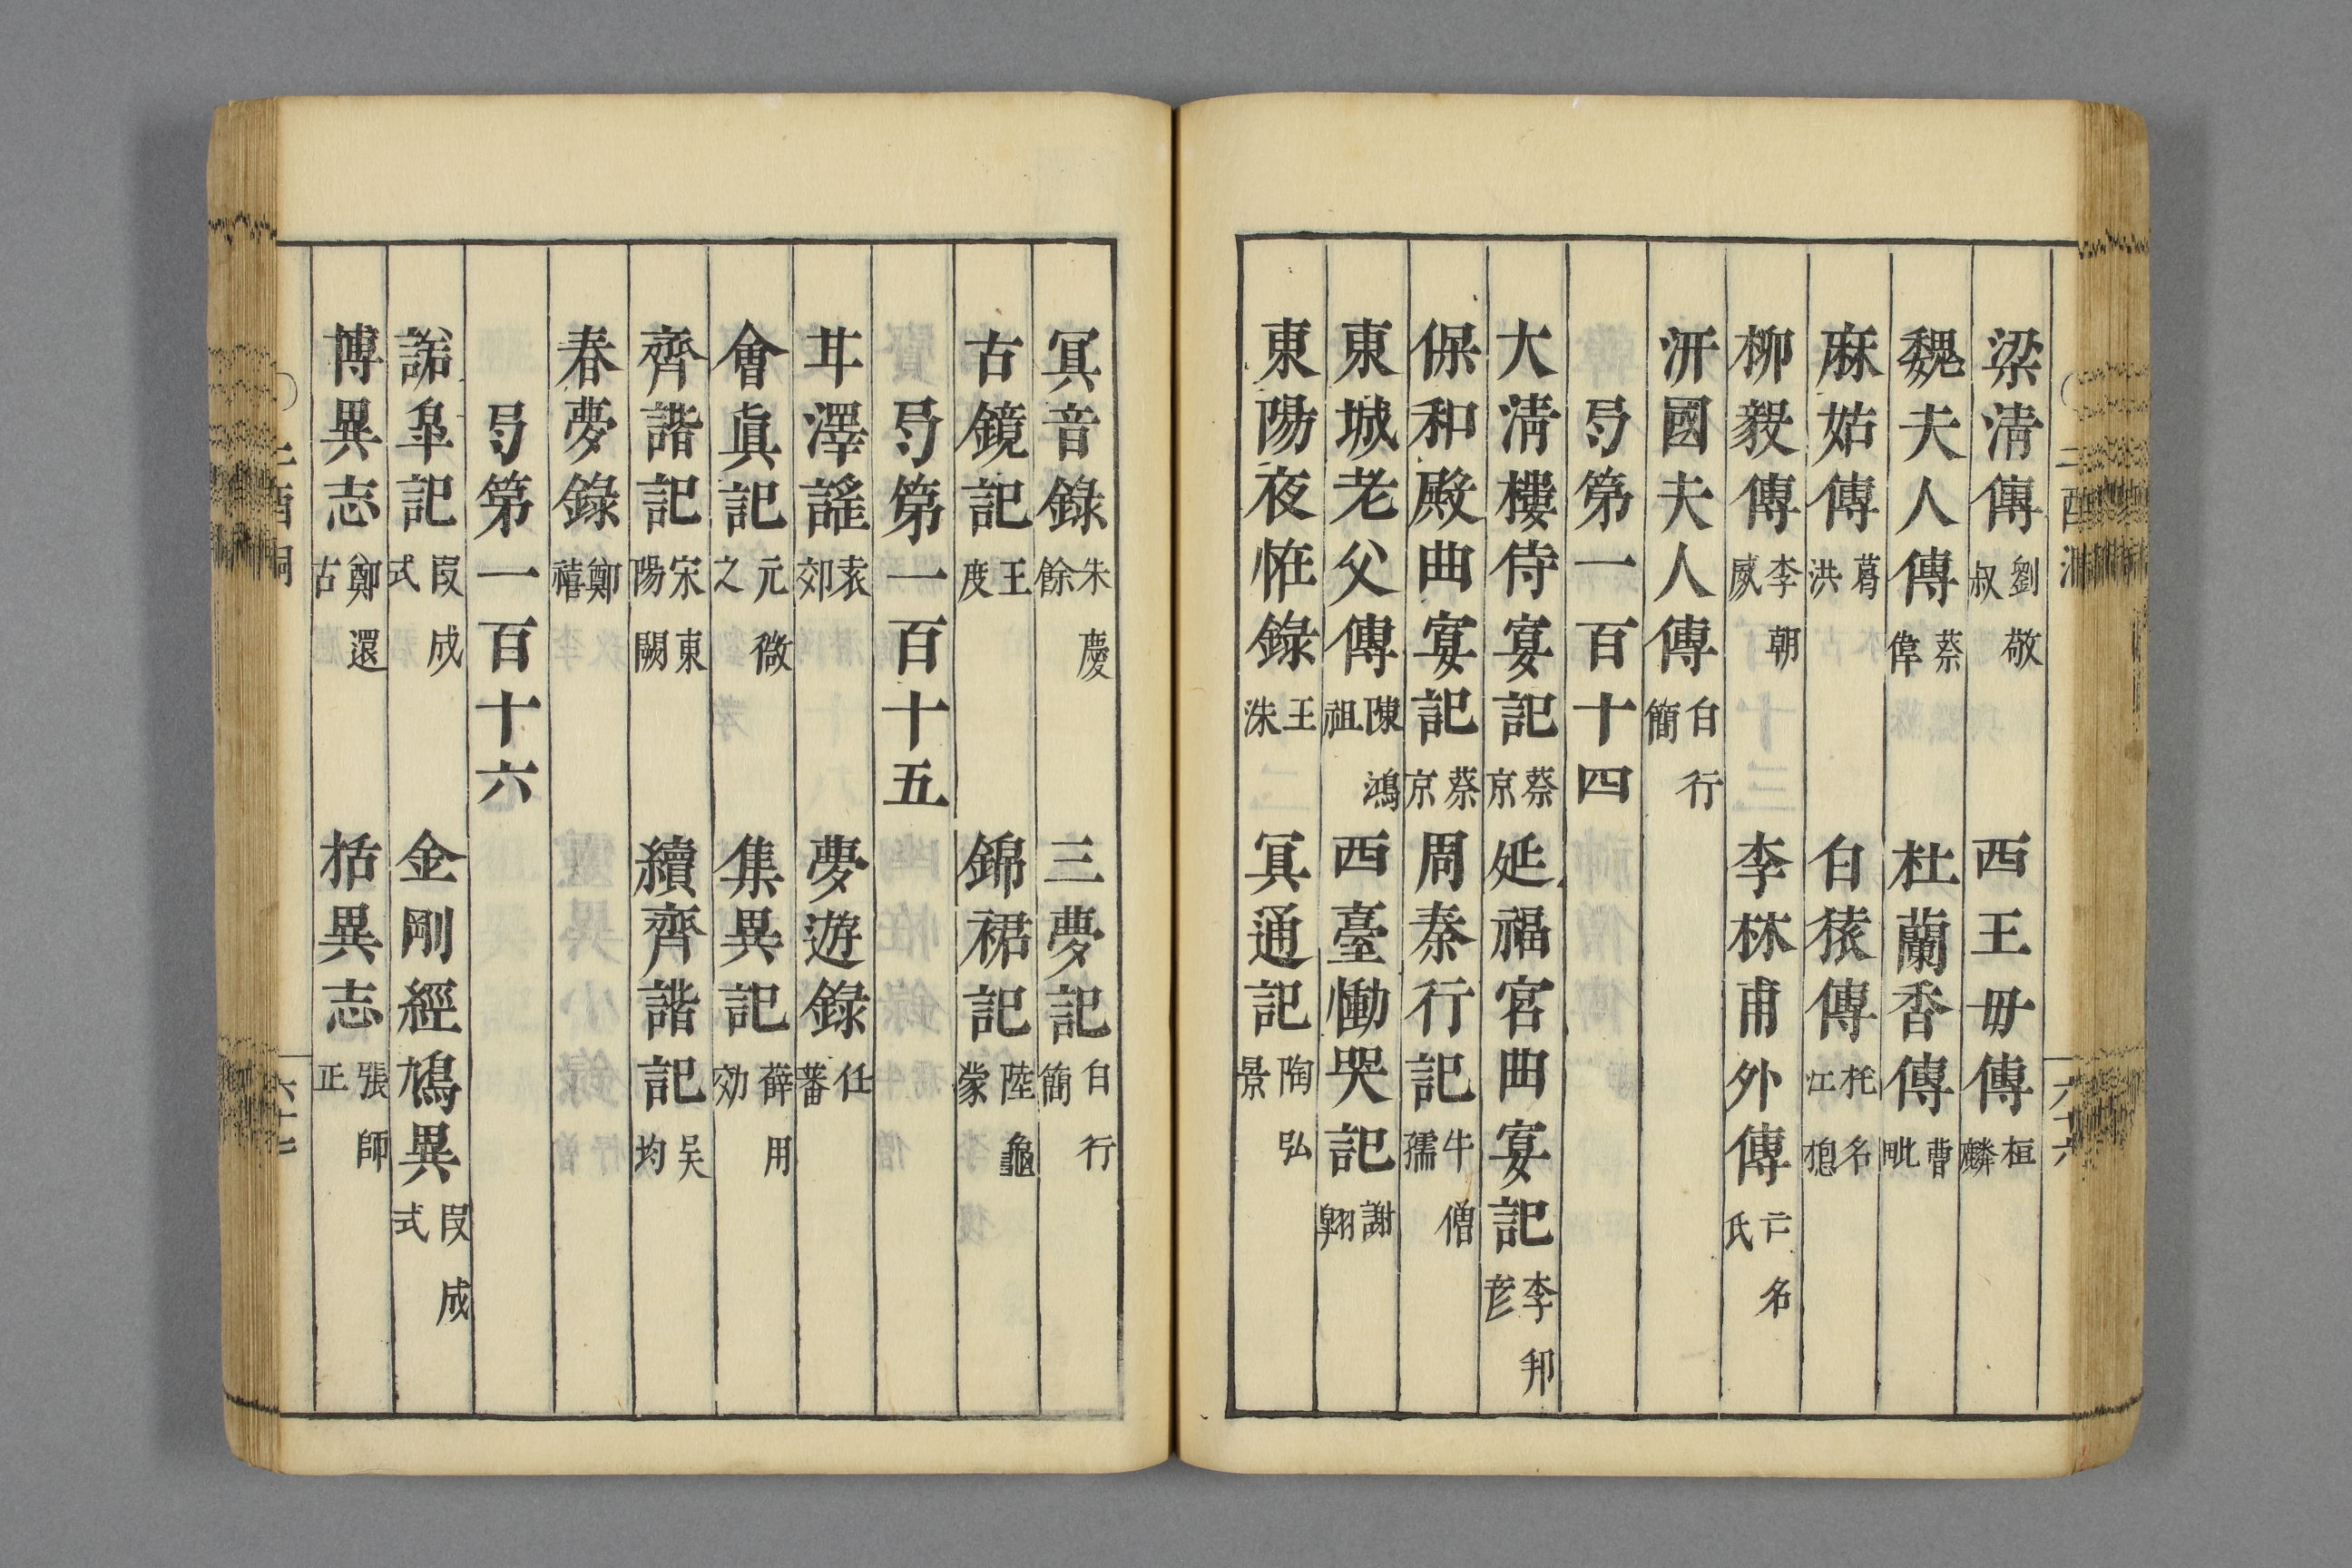 梁淸傳劉敬叔　西王毋傳桓麟
魏夫人傳蔡偉　杜蘭香傳曹毗
麻姑傳葛洪　白猿傳托名江樬
柳毅傳李朝威　李林甫外傳亡名氏
汧國夫人傳白行簡
弓第一百十四
大淸樓侍宴記蔡京　延福宮曲宴記李邦彦
保和殿曲宴記蔡京　周秦行記牛僧孺
東城老父傳陳鴻祖　西臺慟哭記謝翱
東陽夜恠錄王洙　冥通記陶弘景
冥音錄朱慶餘　三夢記白行簡
古鏡記王度　錦裙記陸龜蒙
弓第一百十五
甘澤謠袁郊　夢遊錄任蕃
會眞記元微之　集異記薛用効
齊諧記宋東陽闕　續齊諧記吳均
春夢錄鄭禧
弓第一百十六
諾臯記段成式　金剛經鳩異段成式
博異志鄭還古　括異志張師正